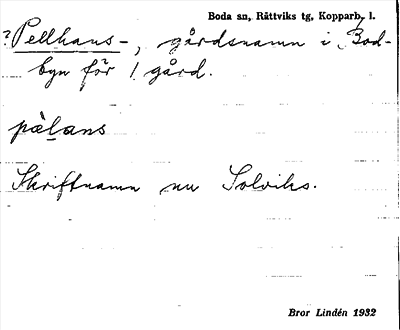 Boda sn, Rättviks tg, Kopparb. l.
? Pellhans-, gårdsnamn i Bod-
byn för 1 gård.
pàlans
Skriftnamn nu Solviks.
Bror Lindén 1932